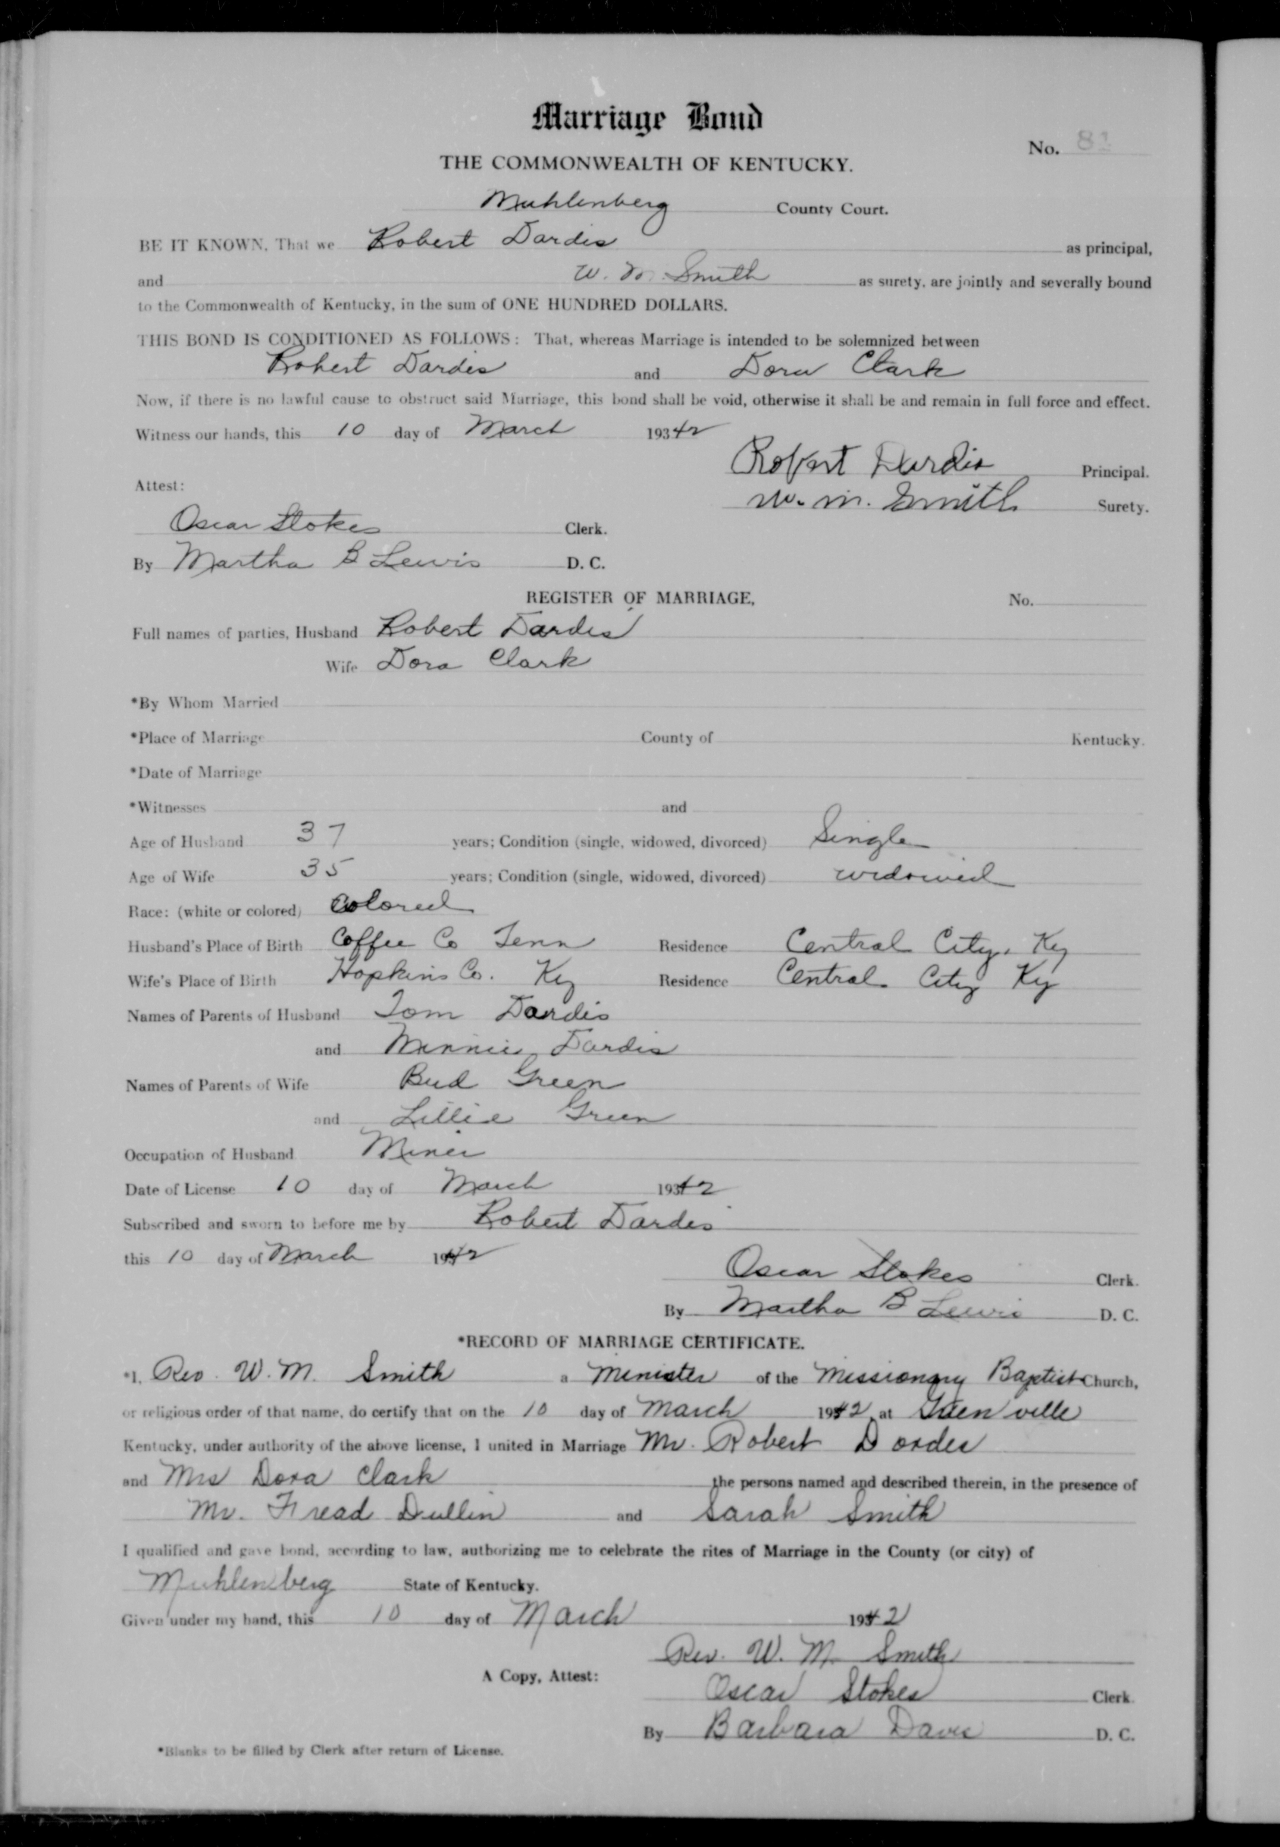 Marriage Bond
No.
THE COMMONWEALTH OF KENTUCKY.
Muhlenberg County Court.
BE IT KNOWN, That we Robert Dardis as principal,
and W. M. Smith as surety, are jointly and severally bound
to the Commonwealth of Kentucky, in the sum of ONE HUNDRED DOLLARS.
THIS BOND IS CONDITIONED AS FOLLOWS: That, whereas Marriage is intended to be solemnized between
Robert Dardis and Dora Clark
Now, if there is no lawful cause to obstruct said Marriage, this bond shall be void, otherwise it shall be and remain in full force and effect.
Witness our hands, this 10 day of March 1942
Robert Dardis Principal.
Attest:
W. M. Smith Surety.
Oscar Stokes Clerk.
By Martha B Lewis D. C.
REGISTER OF MARRIAGE, No.
Full names of parties, Husband Robert Dardis
Wife Dora Clark
*By Whom Married
*Place of Marriage County of Kentucky.
*Date of Marriage
*Witnesses and
Age of Husband 37 years; Condition (single, widowed, divorced) Single
Age of Wife 35 years; Condition (single, widowed, divorced) widowed
Race: (white or colored) Colored
Husband's Place of Birth Coffee Co Tenn Residence Central City, Ky
Wife's Place of Birth Hopkins Co. Ky Residence Central City Ky
Names of Parents of Husband Tom Dardis
and Minnie Dardis
Names of Parents of Wife Bud Green
and Lillie Green
Occupation of Husband Miner
Date of License 10 day of March 1942
Subscribed and sworn to before me by Robert Dardis
this 10 day of March 1942
Oscar Stokes Clerk.
By Martha B Lewis D. C.
*RECORD OF MARRIAGE CERTIFICATE.
*I, Rev. W. M. Smith a Minister of the Missionary Baptist Church,
or religious order of that name, do certify that on the 10 day of March 1942, at Greenville
Kentucky, under authority of the above license, I united in Marriage Mr. Robert Dordis
and Mrs Dora Clark the persons named and described therein, in the presence of
Mr. Fread Dullin and Sarah Smith
I qualified and gave bond, according to law, authorizing me to celebrate the rites of Marriage in the County (or city) of
Muhlenberg State of Kentucky.
Given under my hand, this 10 day of March 1942
Rev. W. M. Smith
A Copy, Attest:
Oscar Stokes Clerk.
By Barbara Davis D. C.
*Blanks to be filled by Clerk after return of License.